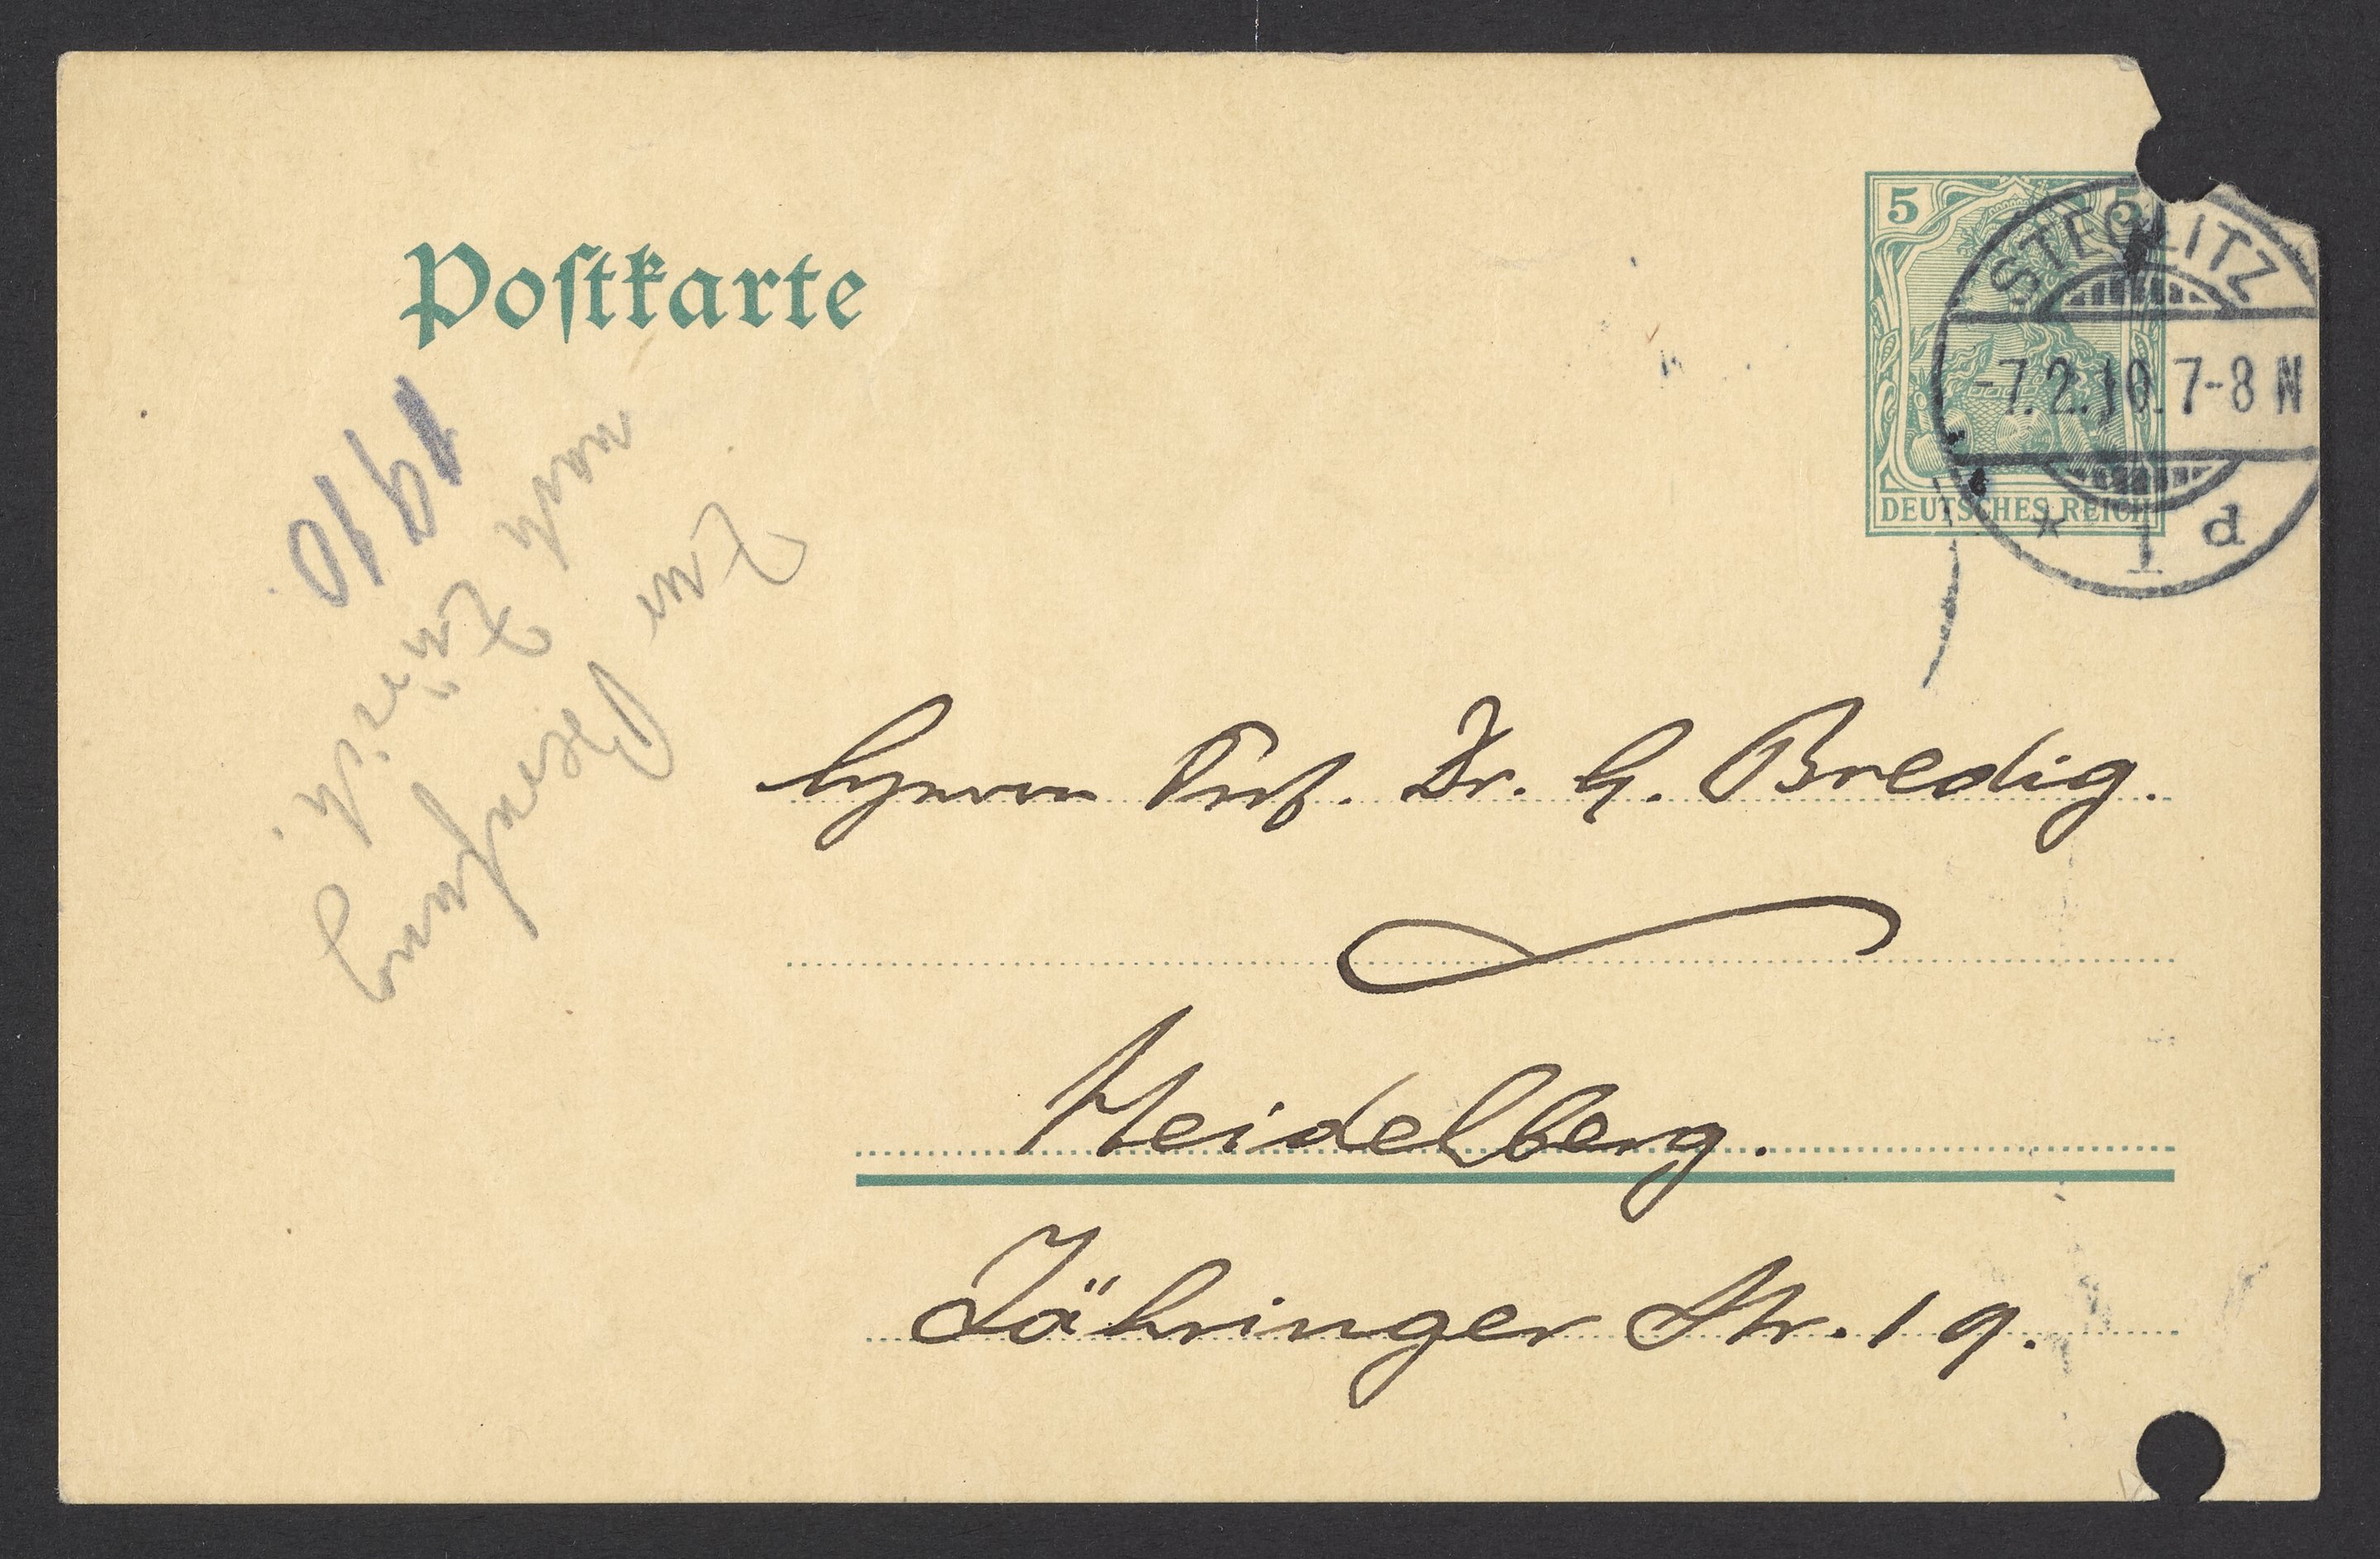 Postkarte
5 5
DEUTSCHES REICH
STEGLITZ
-7.2.10.7-8 N
* 1 d
1910
Zur Berufung
nach Zürich.
Herrn Prof. Dr. G. Bredig.
Heidelberg.
Zähringer Str. 19.